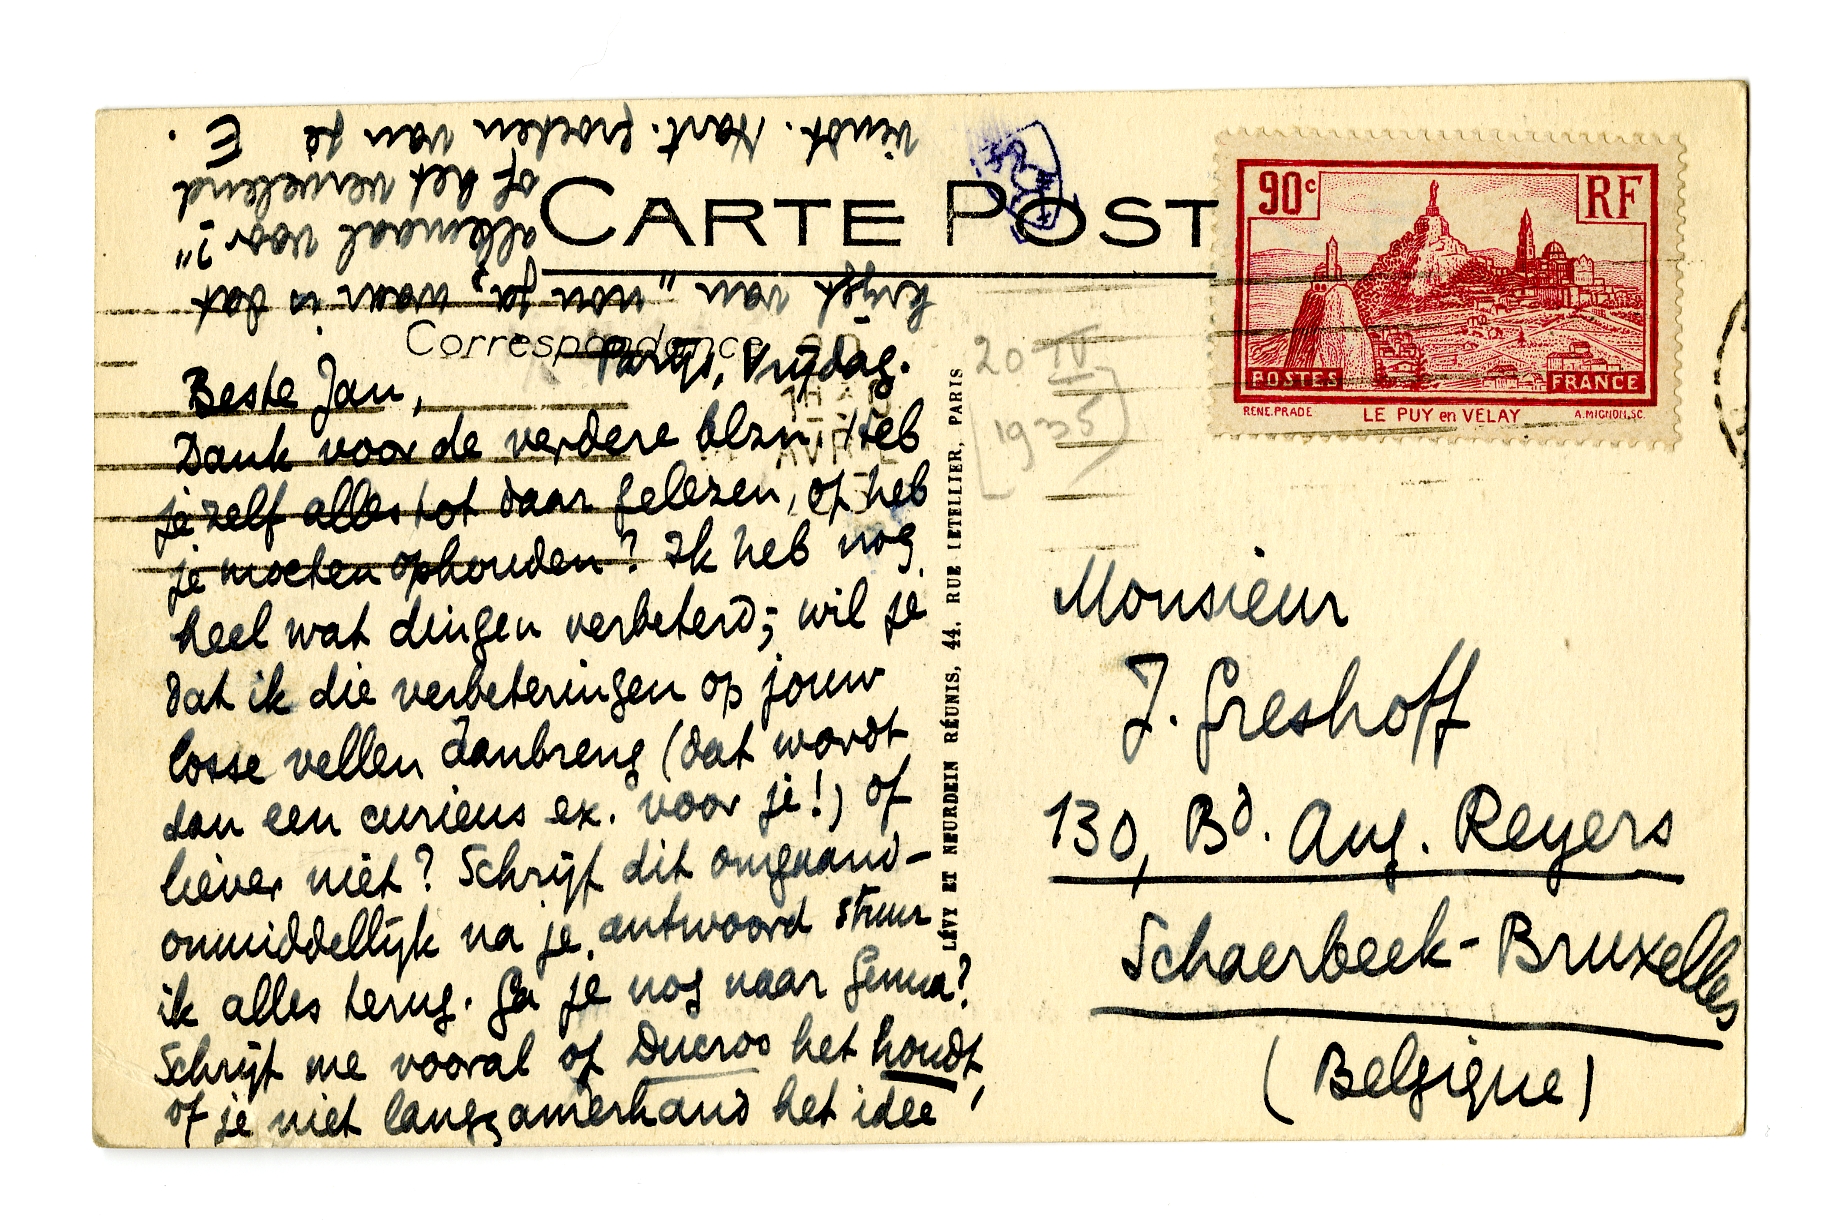 CARTE POST
Correspondance
Parijs, Vrijdag.
Beste Jan,
Dank voor de verdere blzn. Heb
je zelf alles tot daar gelezen, of heb
je moeten ophouden? Ik heb nog
heel wat dingen verbeterd; wil je
dat ik die verbeteringen op jouw
losse vellen aanbreng (dat wordt
dan een curieus ex. voor je!) of
liever niet? Schrijf dit omgaand –
onmiddellijk na je antwoord stuur
ik alles terug. Ga je nog naar Genua?
Schrijf me vooral of Ducroo het houdt,
of je niet langzamerhand het idee
krijgt van "nou ja, waar is dat
allemaal voor?"
of het vervelend
vindt. Hart. groeten van je E.
LÉVY ET NEURDEIN RÉUNIS, 44, RUE LETELLIER, PARIS
20-IV
[1935]
90c
RF
POSTES
FRANCE
RENE.PRADE
LE PUY en VELAY
A.MIGNON.SC.
Monsieur
J. Greshoff
130, Bd. Aug. Reyers
Schaerbeek-Bruxelles
(Belgique)